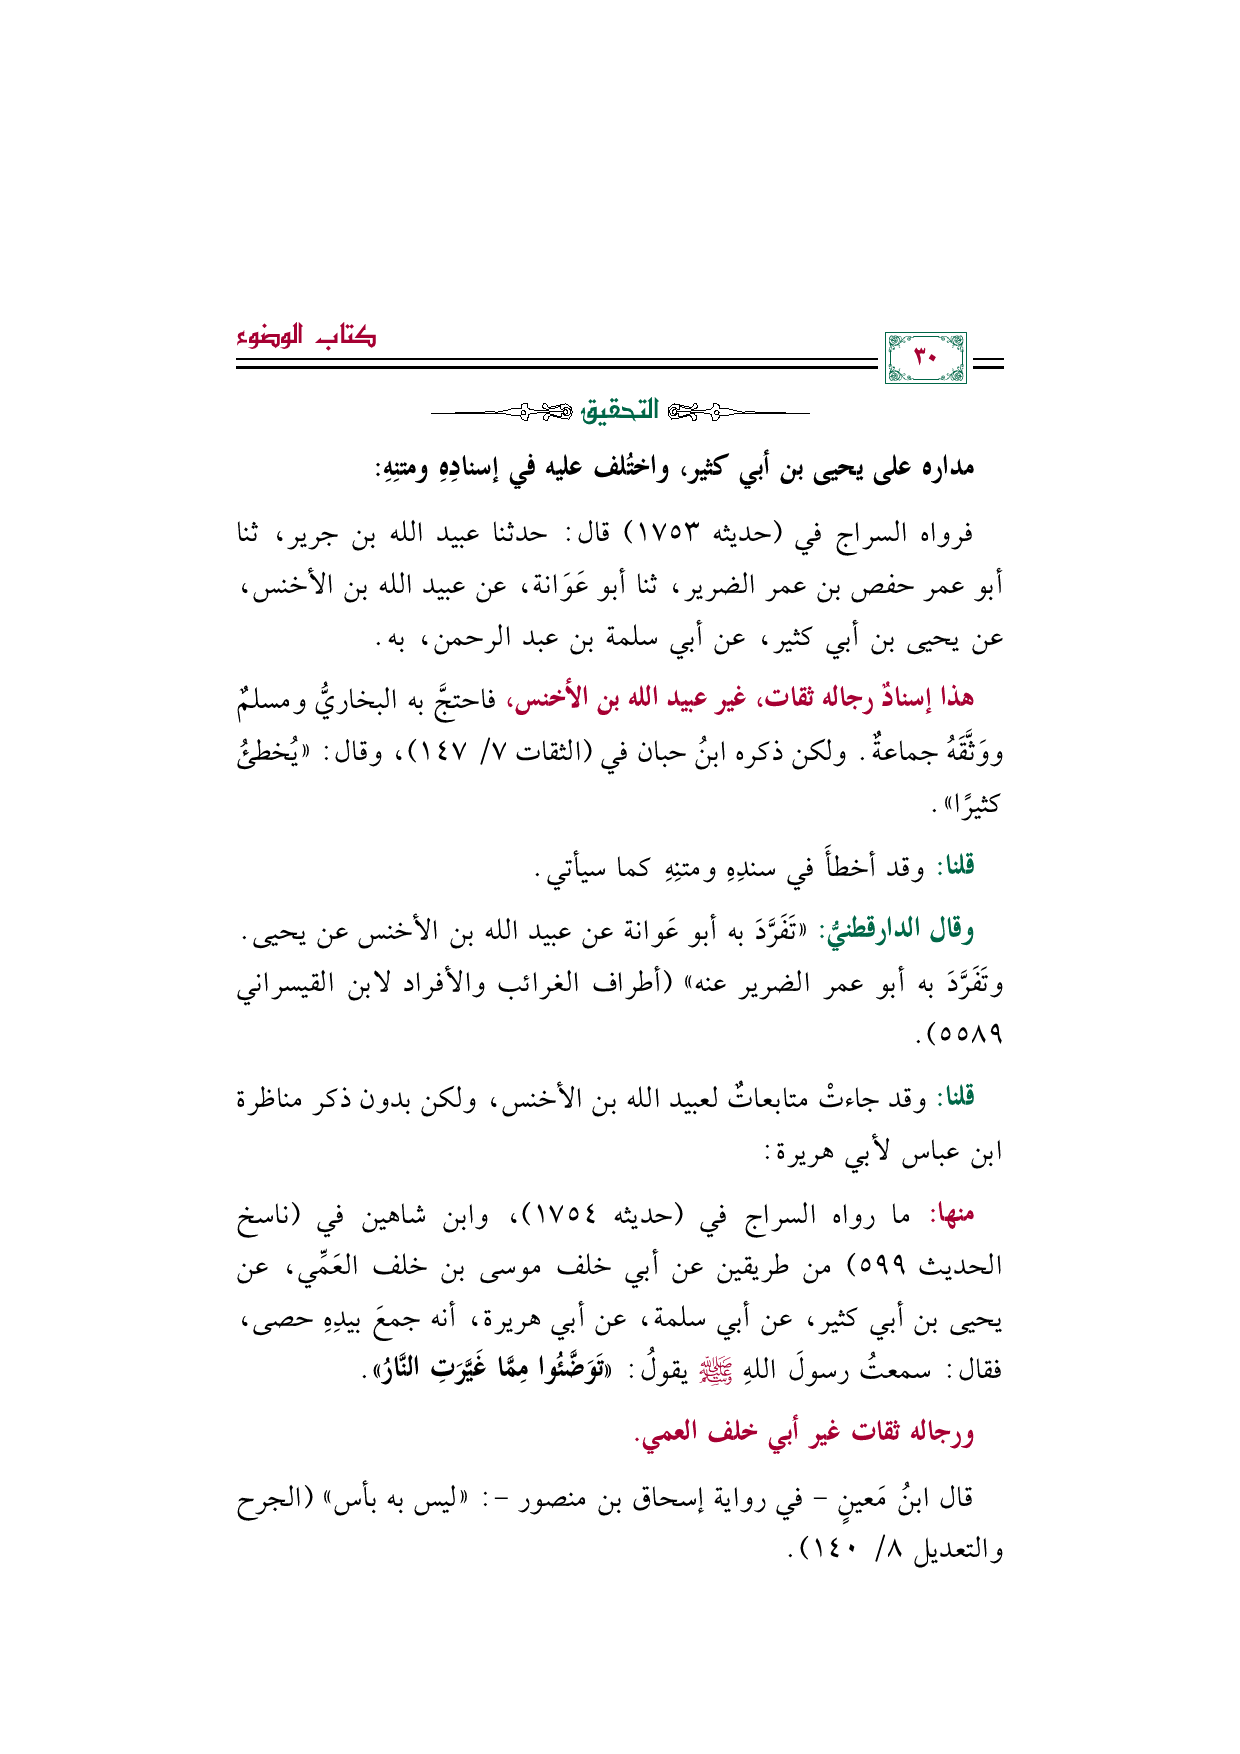 كتاب الوضوء
٣٠
التحقيق
مداره على يحيى بن أبي كثير، واختُلف عليه في إسنادِهِ ومتنِهِ:
فرواه السراج في (حديثه ١٧٥٣) قال: حدثنا عبيد الله بن جرير، ثنا
أبو عمر حفص بن عمر الضرير، ثنا أبو عَوَانة، عن عبيد الله بن الأخنس،
عن يحيى بن أبي كثير، عن أبي سلمة بن عبد الرحمن، به.
هذا إسنادٌ رجاله ثقات، غير عبيد الله بن الأخنس، فاحتجَّ به البخاريُّ ومسلمٌ
ووَثَّقَهُ جماعةٌ. ولكن ذكره ابنُ حبان في (الثقات ٧/ ١٤٧)، وقال: «يُخطئُ
كثيرًا».
قلنا: وقد أخطأَ في سندِهِ ومتنِهِ كما سيأتي.
وقال الدارقطنيُّ: «تَفَرَّدَ به أبو عَوانة عن عبيد الله بن الأخنس عن يحيى.
وتَفَرَّدَ به أبو عمر الضرير عنه» (أطراف الغرائب والأفراد لابن القيسراني
٥٥٨٩).
قلنا: وقد جاءتْ متابعاتٌ لعبيد الله بن الأخنس، ولكن بدون ذكر مناظرة
ابن عباس لأبي هريرة:
منها: ما رواه السراج في (حديثه ١٧٥٤)، وابن شاهين في (ناسخ
الحديث ٥٩٩) من طريقين عن أبي خلف موسى بن خلف العَمِّي، عن
يحيى بن أبي كثير، عن أبي سلمة، عن أبي هريرة، أنه جمعَ بيدِهِ حصى،
فقال: سمعتُ رسولَ اللهِ ﷺ يقولُ: «تَوَضَّئُوا مِمَّا غَيَّرَتِ النَّارُ».
ورجاله ثقات غير أبي خلف العمي.
قال ابنُ مَعينٍ - في رواية إسحاق بن منصور -: «ليس به بأس» (الجرح
والتعديل ٨/ ١٤٠).